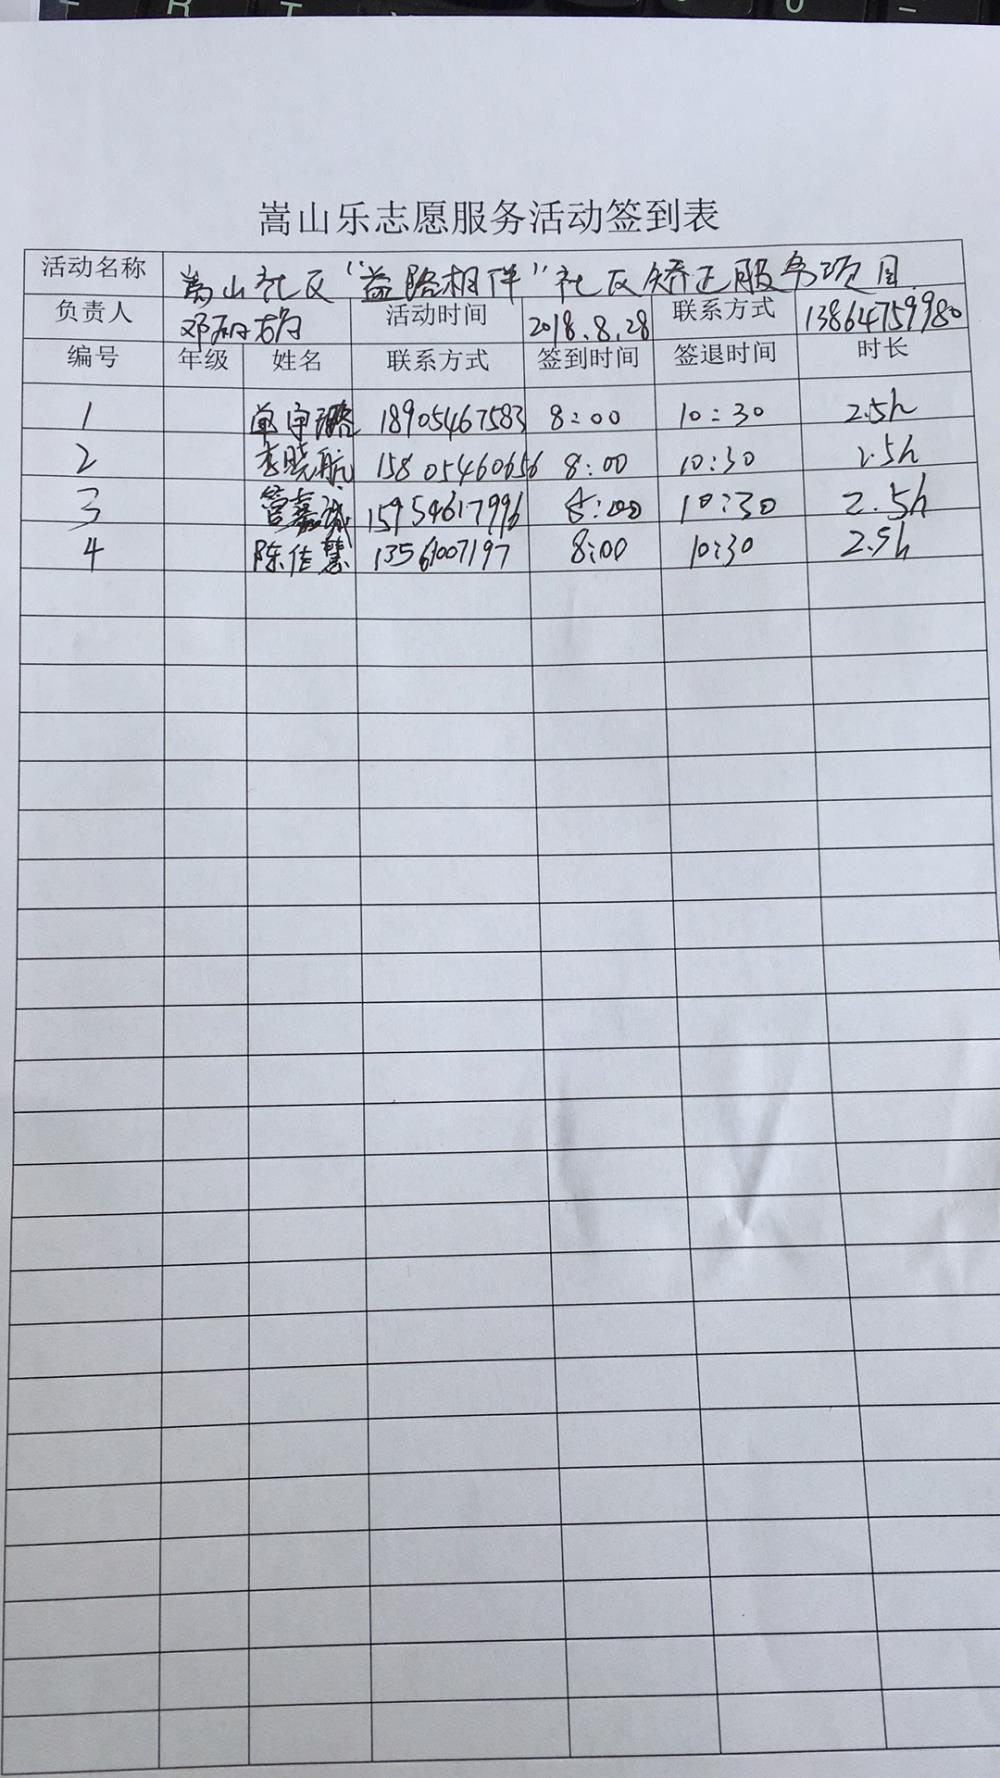 嵩山乐志愿服务活动签到表
活动名称 嵩山社区“益路相伴”社区矫正服务项目
负责人 活动时间 2018.8.28 联系方式 13864759980
编号 年级 姓名 联系方式 签到时间 签退时间 时长
1 单宇璐 18905467583 8:00 10:30 2.5h
2 李晓航 15805460656 8:00 10:30 2.5h
3 管嘉诚 15954617996 8:00 10:30 2.5h
4 陈佳慧 13561007197 8:00 10:30 2.5h